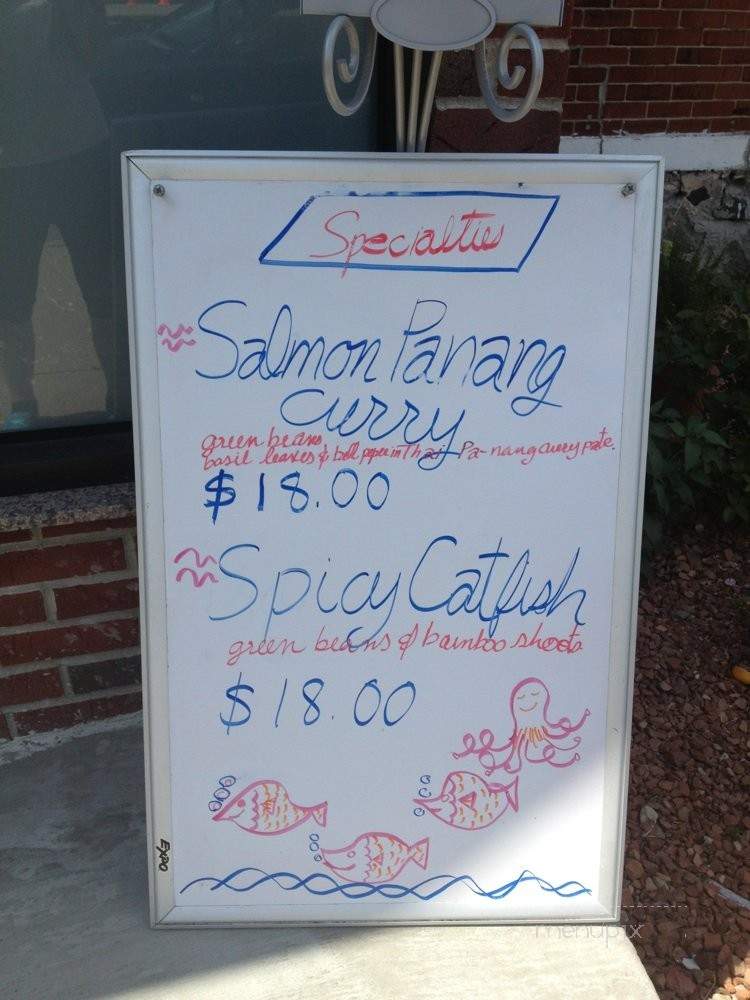 Specialties
Salmon Panang
Curry
green beans
basil leaves & bell pepper in Thai Pa-nang curry paste.
$18.00
Spicy Catfish
green beans & bamboo shoots
$18.00
EXPO
menupix